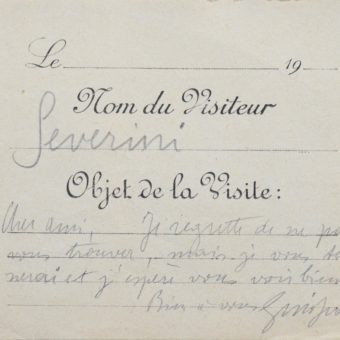 Le 19
Nom du Visiteur
Severini
Objet de la Visite:
Cher ami, Je regrette de ne pas
vous trouver, mais je vous
et j'espère vous voir bien
Bien à vous